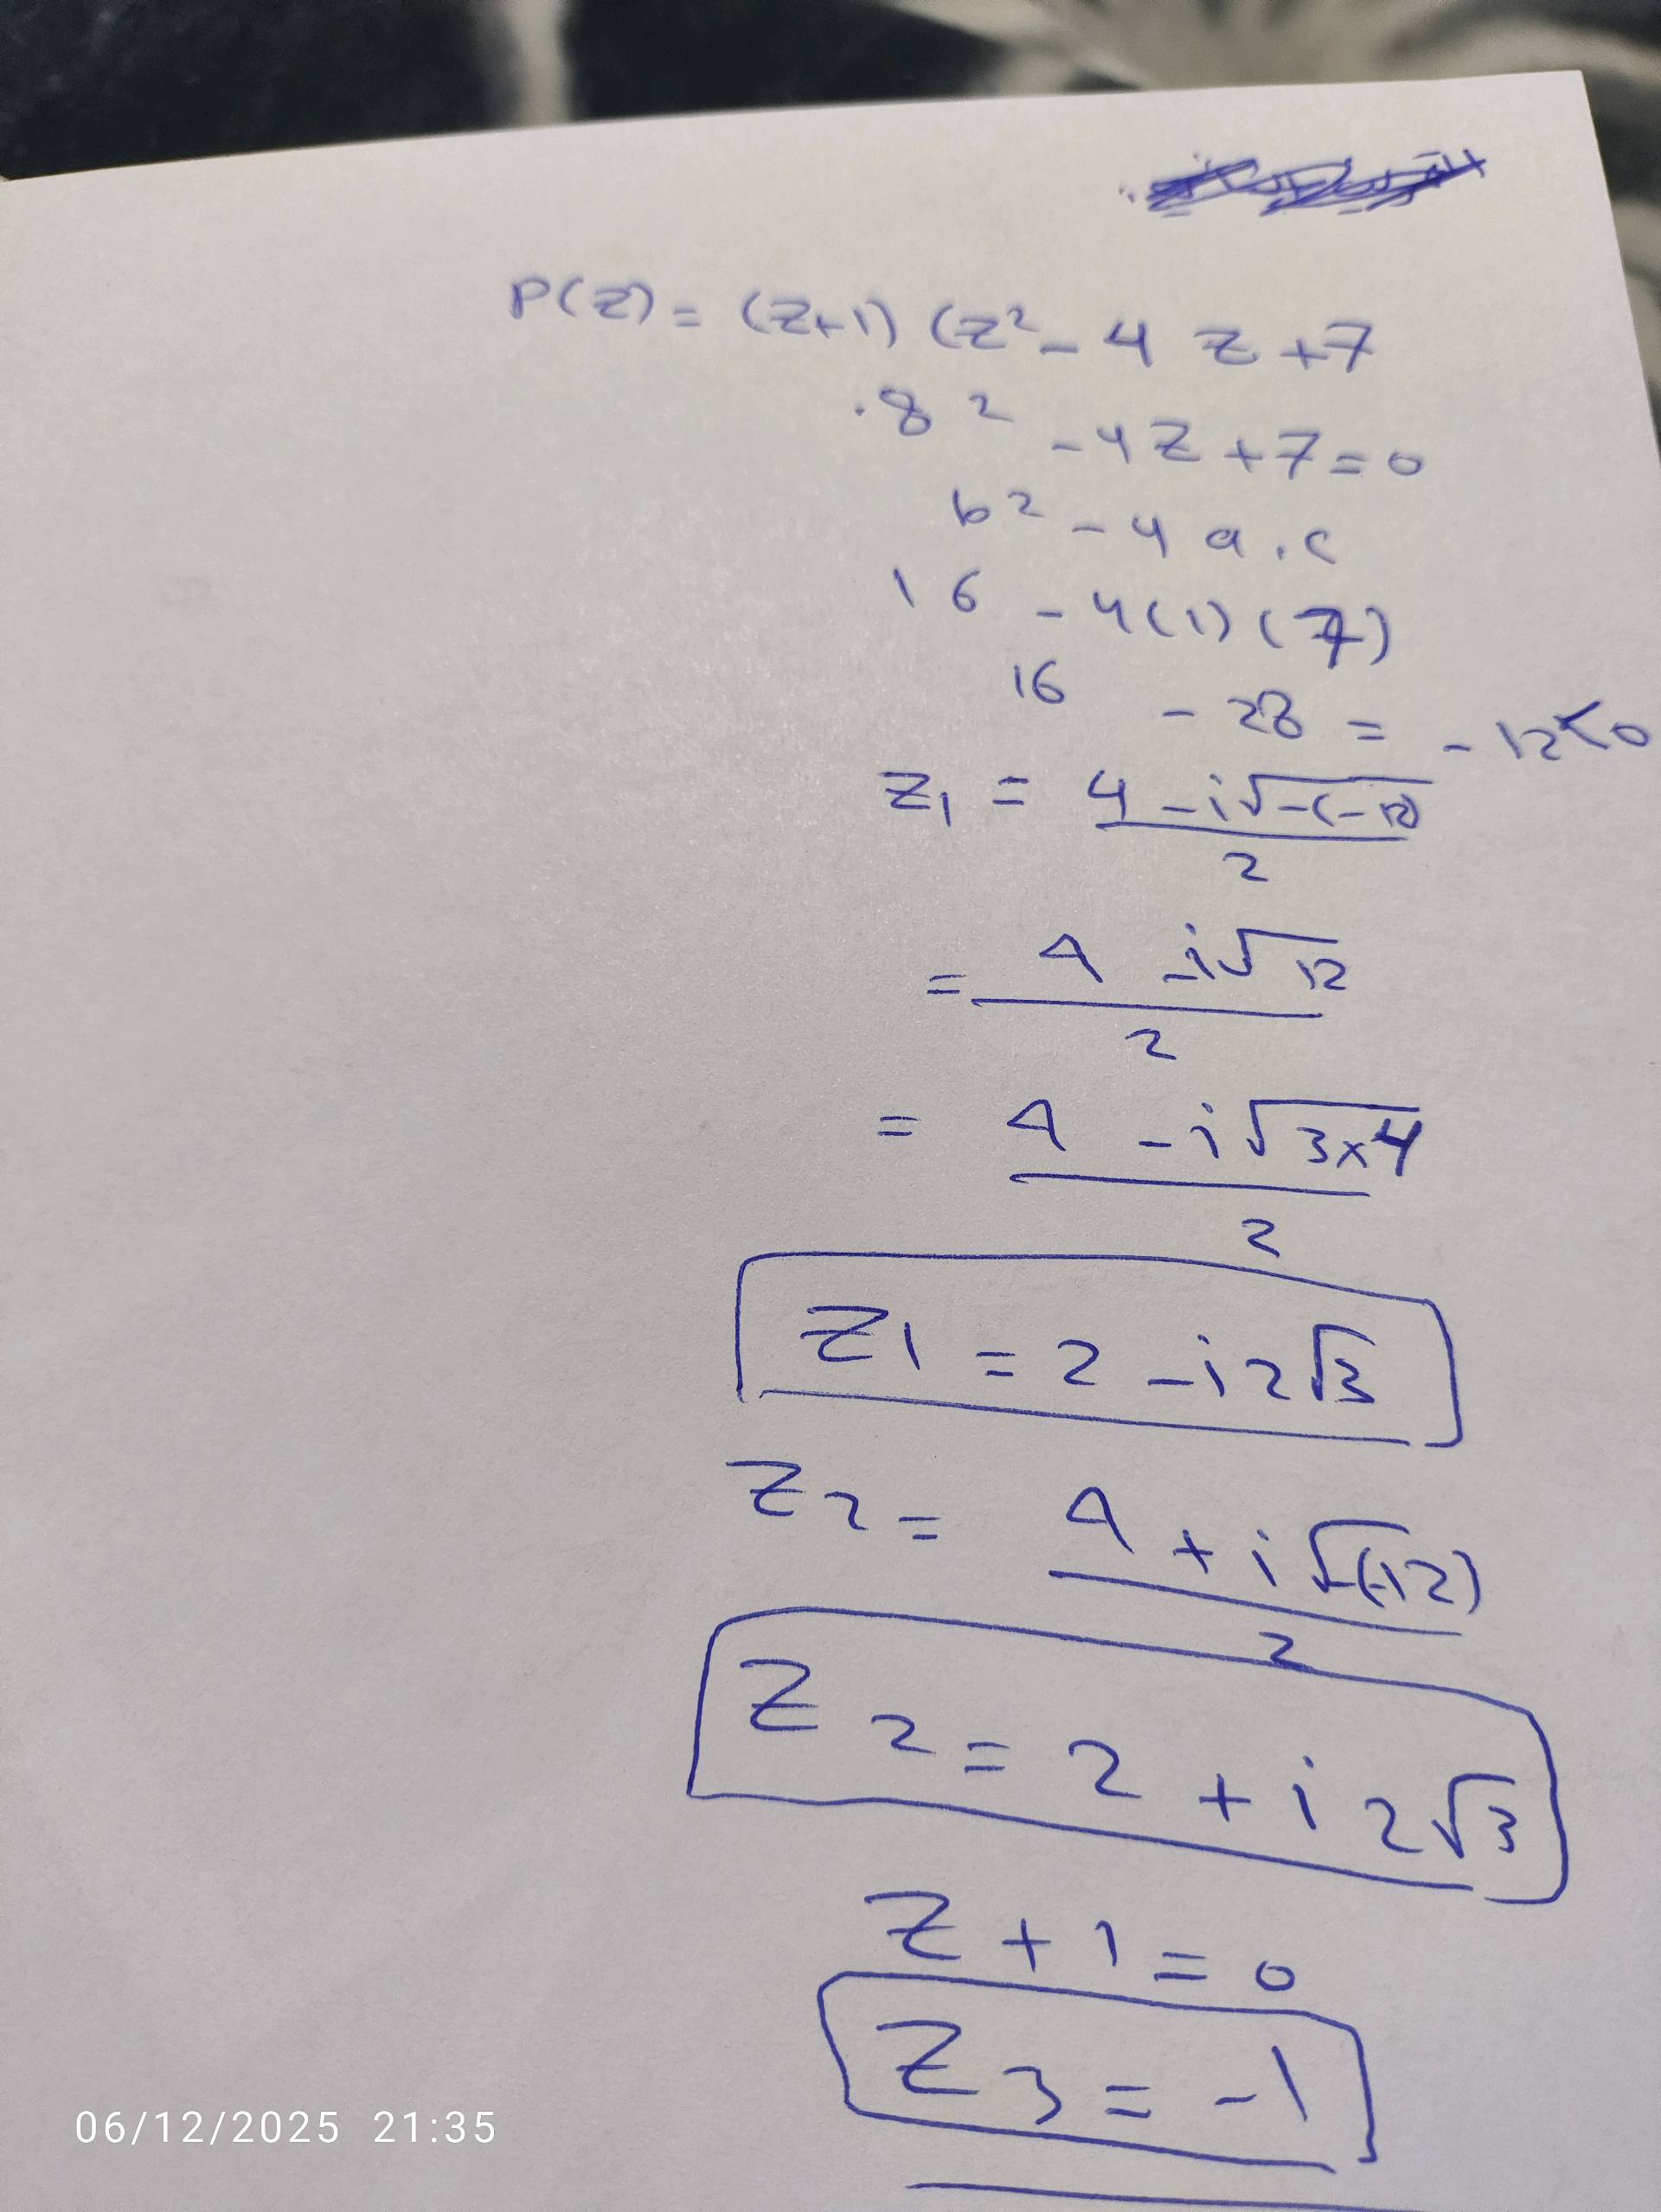 P(z) = (z+1) (z² - 4 z + 7
.8² - 4z + 7 = 0
b² - 4 a . c
16 - 4(1)(7)
16 - 28 = - 12 < 0
z₁ = (4 - i√-(-12)) / 2
= (4 - i√12) / 2
= (4 - i√3×4) / 2
z₁ = 2 - i2√3
z₂ = (4 + i√-(-12)) / 2
z₂ = 2 + i 2√3
z + 1 = 0
z₃ = -1
06/12/2025 21:35